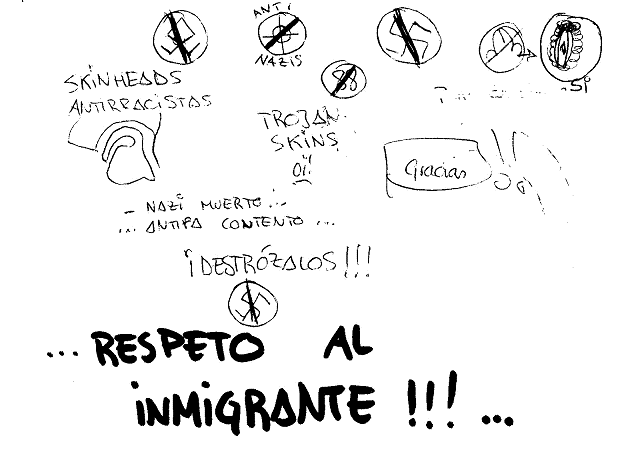 ANTI
NAZIS
88
SKINHEADS
ANTIRRACISTAS
TROJAN
SKINS
Oi!
SI
Gracias
- NAZI MUERTO...
... ANTIFA CONTENTO ...
¡DESTRÓZALOS!!!
... RESPETO AL
INMIGRANTE !!! ...